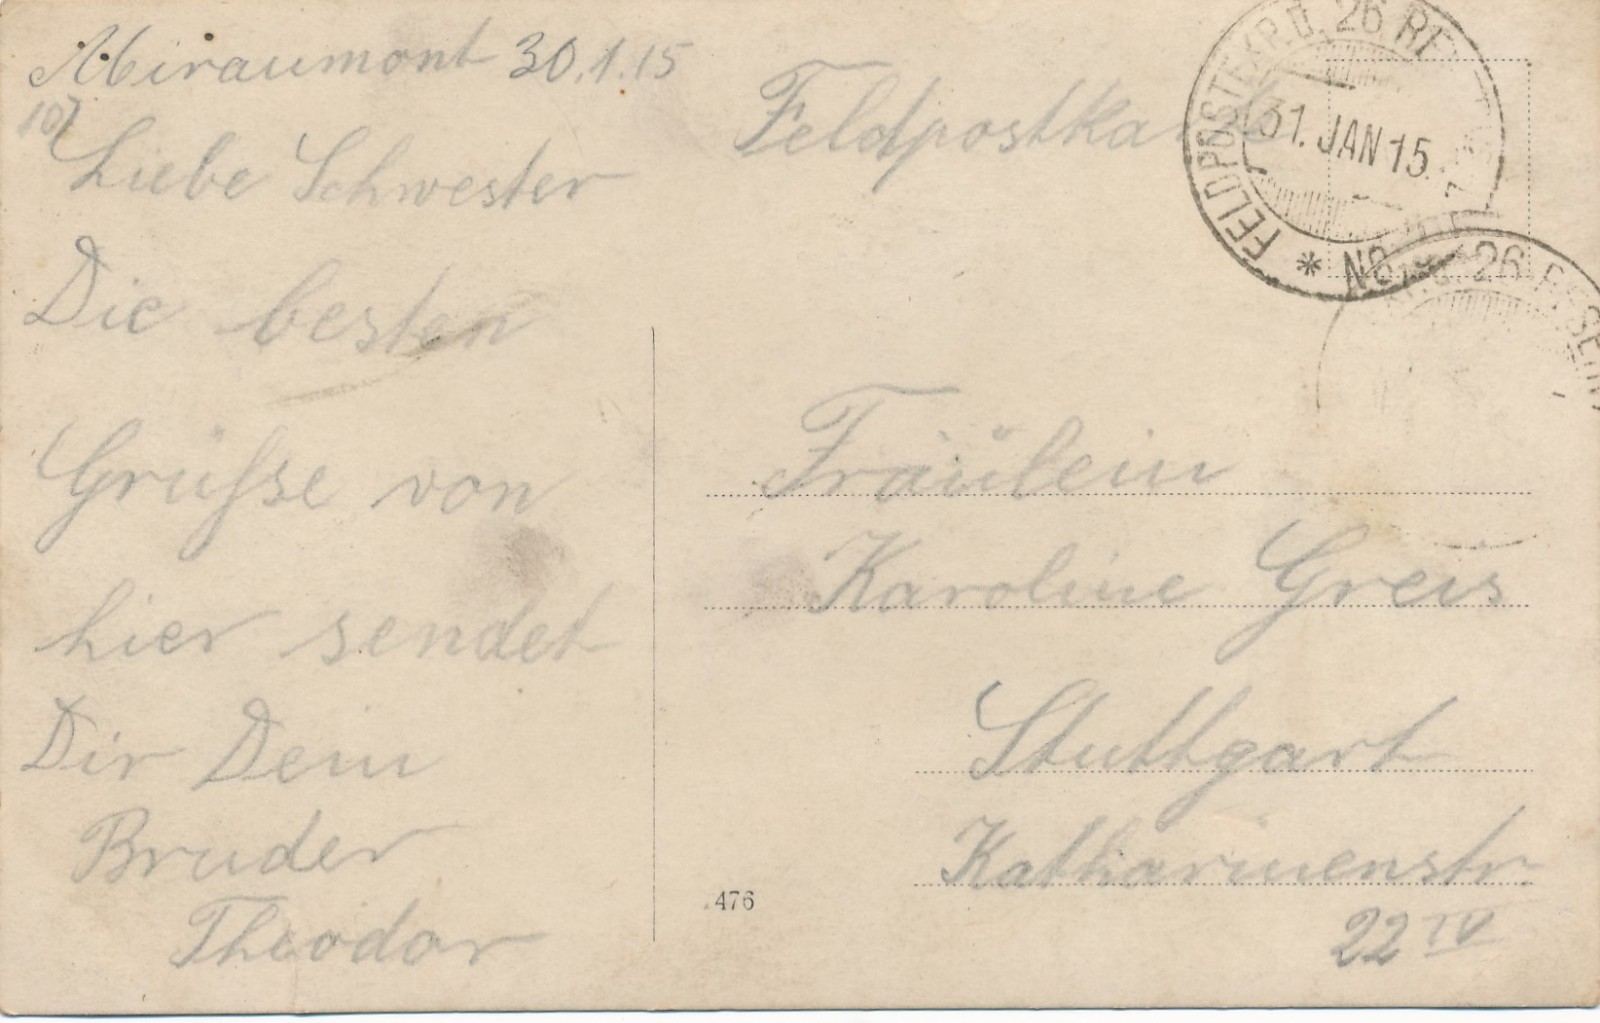 Miraumont 30.1.15
107
Liebe Schwester
Die besten
Grüsse von
hier sendet
Dir Dein
Bruder
Theodor
Feldpostka
FELDPOSTEXP. D. 26 RE
31. JAN 15.
26 RESERV
Fräulein
Karoline Greis
Stuttgart
Katharinenstr.
22 IV
476